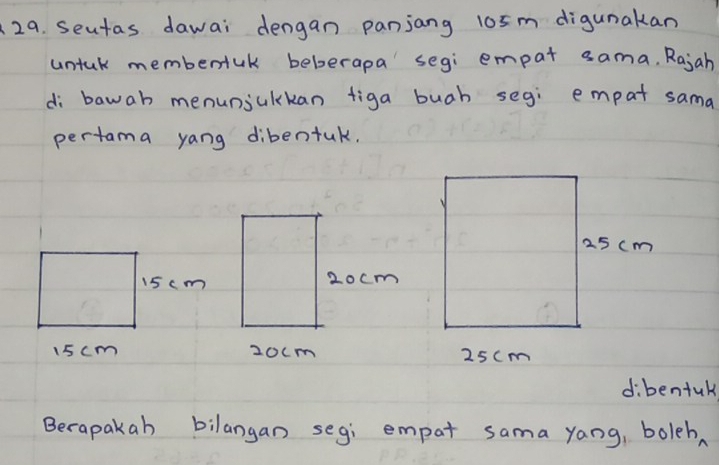 29. Seutas dawai dengan panjang 105 m digunakan
untuk membentuk beberapa segi empat sama. Rajah
di bawah menunjukkan tiga buah segi empat sama
pertama yang dibentuk.
15 cm
20 cm
25 cm
15 cm
20 cm
25 cm
dibentuk
Berapakah bilangan segi empat sama yang boleh^